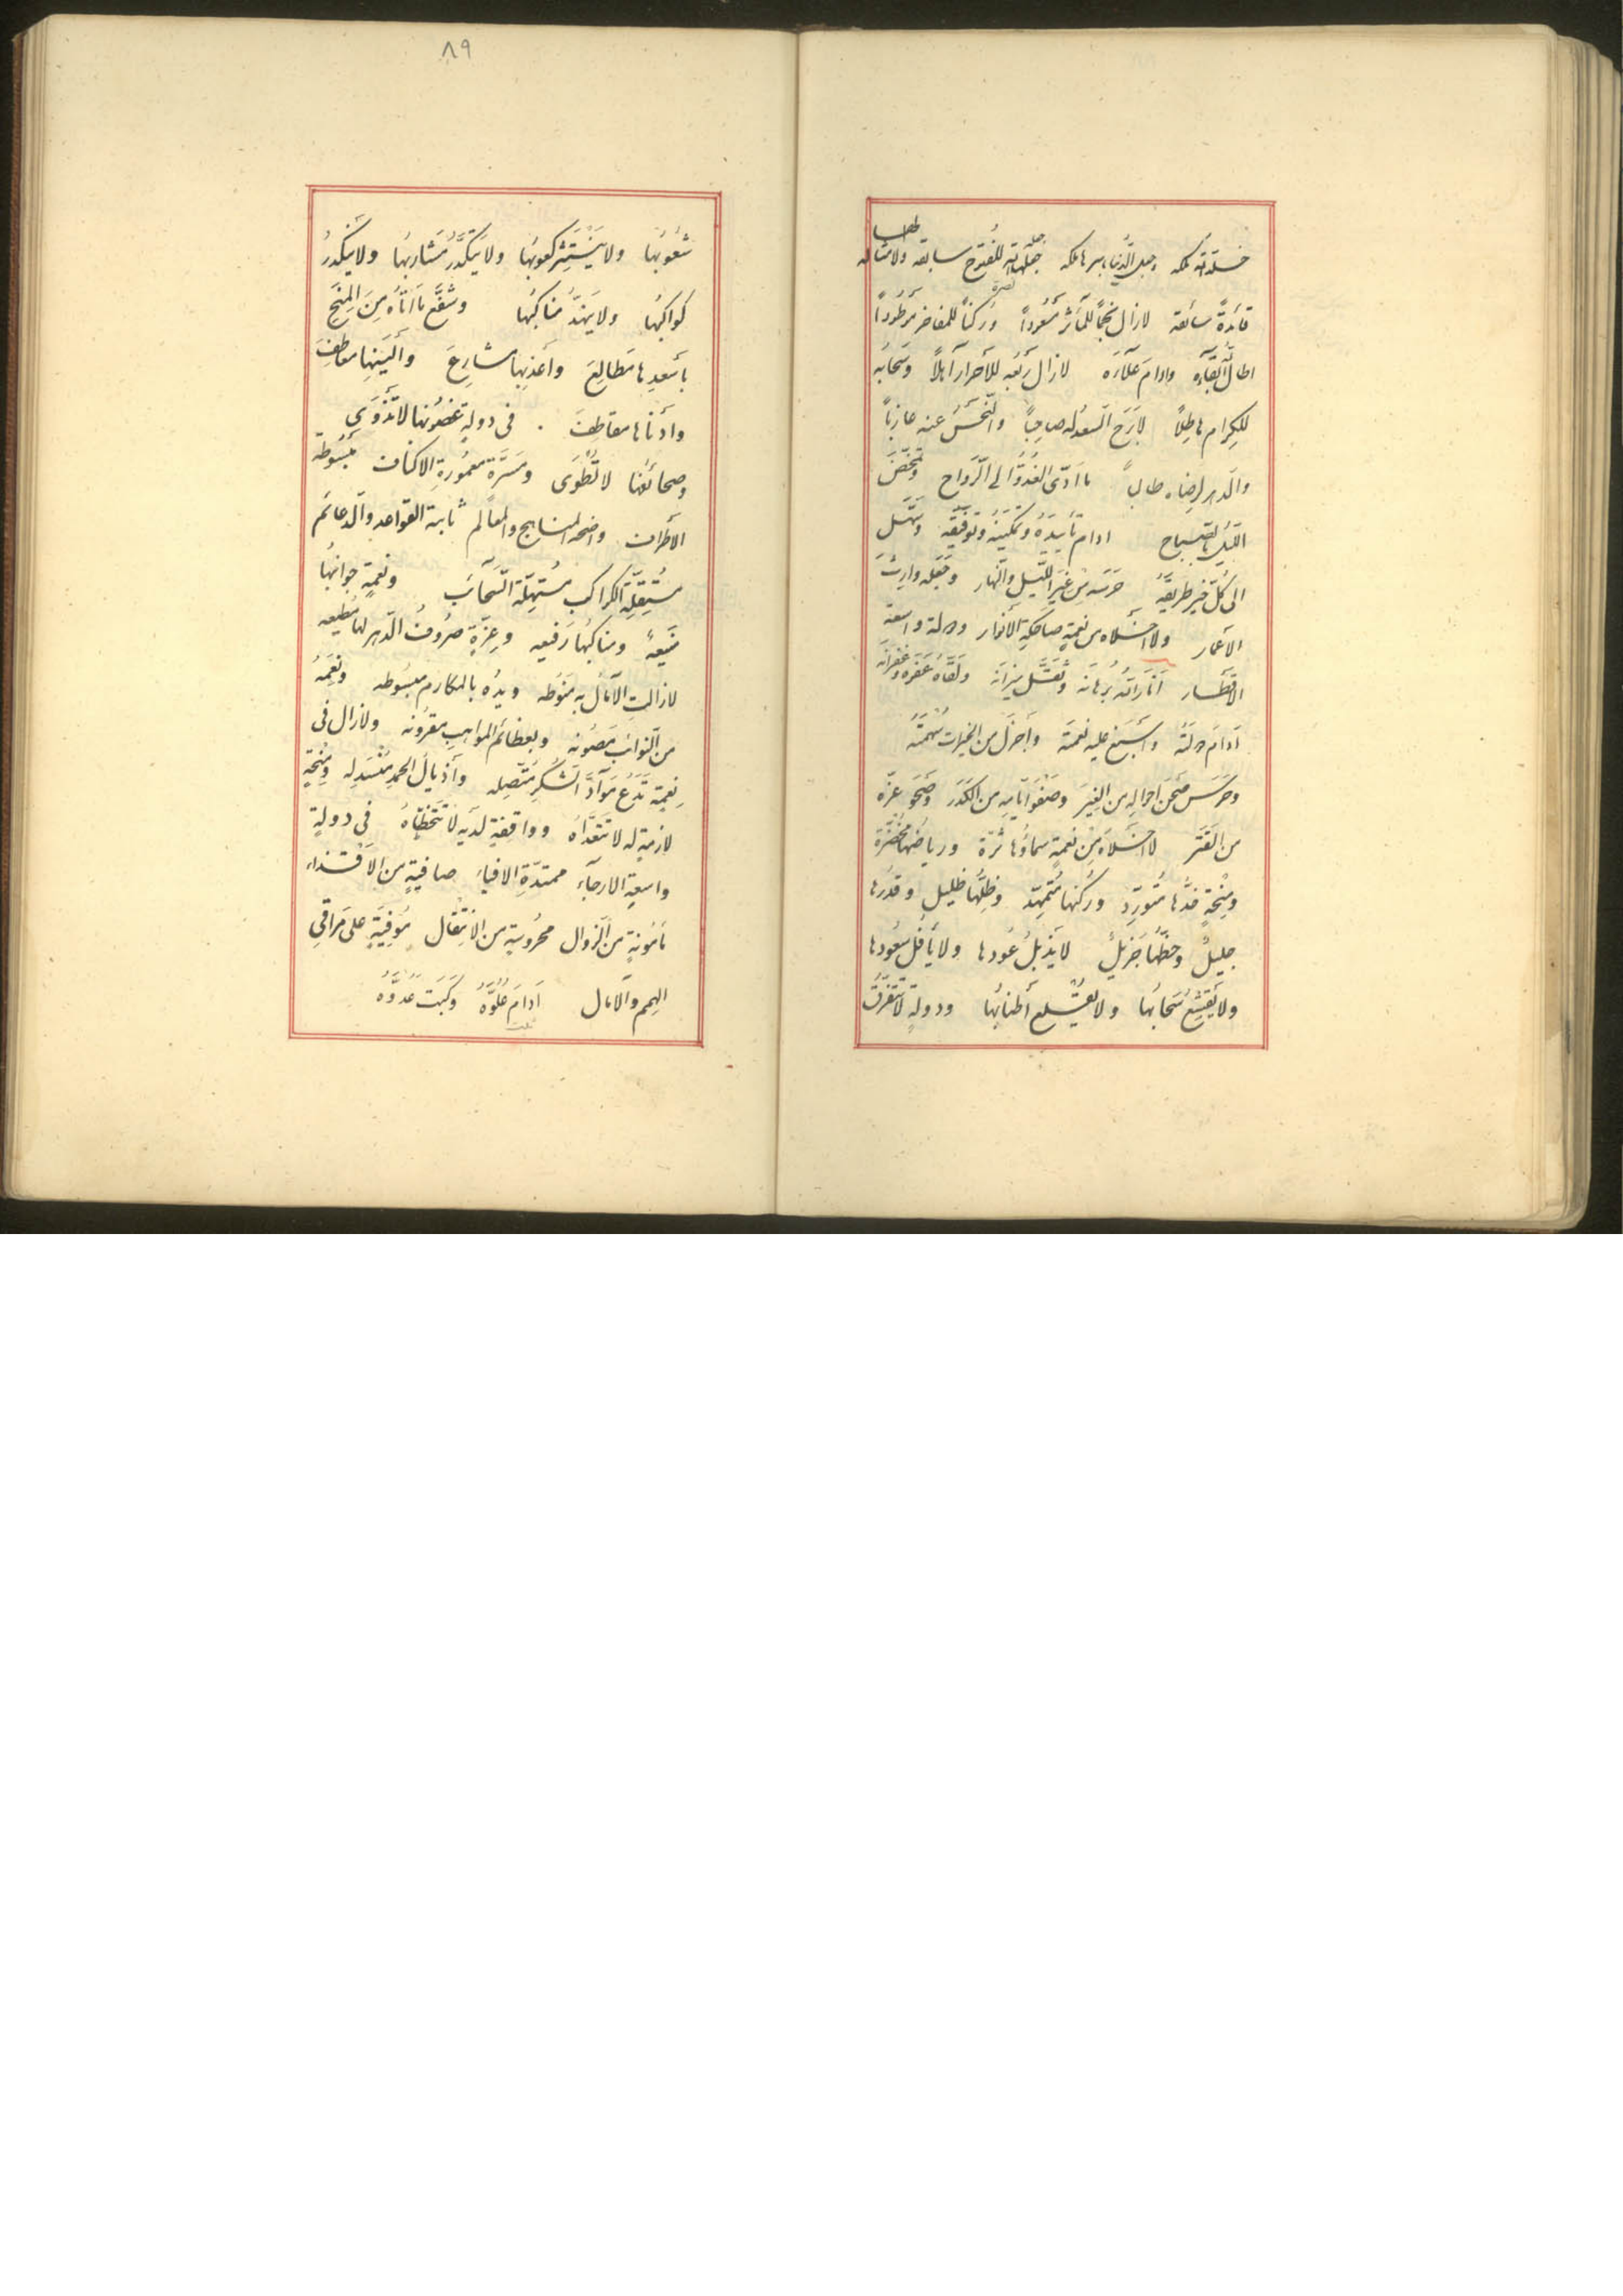 خلد الله ملكه وجعل الدنيا باسرها ملكه جعل الله للفتوح سابقه ولا مثاله
قائدةً سائقه لازال نجماً للمآثر مسعوداً وركناً للمفاخر موطوداً
اطال الله بقآءه وادام علآءه لازال ربعه للأحرار آهلاً وسحابه
للكرام هاطلاً لابرح السعد له صاحباً والنّحس عنه عازباً
والدهر لرضاه طالباً ما ادّى الغدوّ الى الرّواح وتمخّض
الليل بالصباح ادام تأييده وتمكينه وتوفيقه وسهّل
الى كل خير طريقه حرسه من غير الليل والنهار وجعله وارث
الأعمار ولا اخلاه من نعمةٍ ضاحكة الأنوار ودولة واسعة
الاقطار أنار الله برهانه وثقّل ميزانه ولقّاه عفوه وغفرانه
أدام دولته وأسبغ عليه نعمته وأجزل من الخيرات سهمته
وحرس صحن احواله من الغِيَر وصفو أيامه من الكدر وصحو عزّه
من القتر لا اخلاه من نعمةٍ سماؤها ثرّة ورياضها مخضرّة
ومنحةٍ خدّها متورّد وركنها متمهّد وظلّها ظليل وقدرها
جليلٌ وحظّها جزيلٌ لايذبل عودها ولا يأفل سعودها
ولا يقشع سحابها ولا يقلع أطنابها ودولةٍ لا تتفرّق
٨٩
شعوبها ولا ينتثر كعوبها ولا يتكدّر مشاربها ولا ينكدر
كواكبها ولا ينهدّ مناكبها وشفّع ما أتاه من المنح
بأسعدها مطالع وأعذبها مشارع وألينها معاطف
وأدناها مقاطف . فى دولةٍ غصونها لا تذوى
وصحائفها لا تُطوى ومسرّة معمورة الاكناف مبسوطة
الأطراف واضحة المناهج والمعالم ثابتة القواعد والدعائم
مستقلّة الكواكب مستهلّة السّحائب ونعمةٍ جوانبها
منيعةً ومناكبها رفيعه وعزّةٍ صروف الدّهر لها مطيعه
لازالت الآمال به منوطه ويده بالمكارم مبسوطه ونعمه
من النوائب مصونه وبعظائم المواهب مقرونه ولازال فى
نعمةٍ تدع موادّ الشكر متّصله وأذيال الحمد منسدله ومنحةٍ
لازمةٍ له لا تتعدّاه وواقفةٍ لديه لا تتخطّاه فى دولةٍ
واسعة الارجآء ممتدّة الافياء صافيةٍ من الأقذاء
مأمونةٍ من الزوال محروسةٍ من الانتقال موفيةٍ على مراقى
الهمم والآمال أدام علوّه وكبت عدوّه